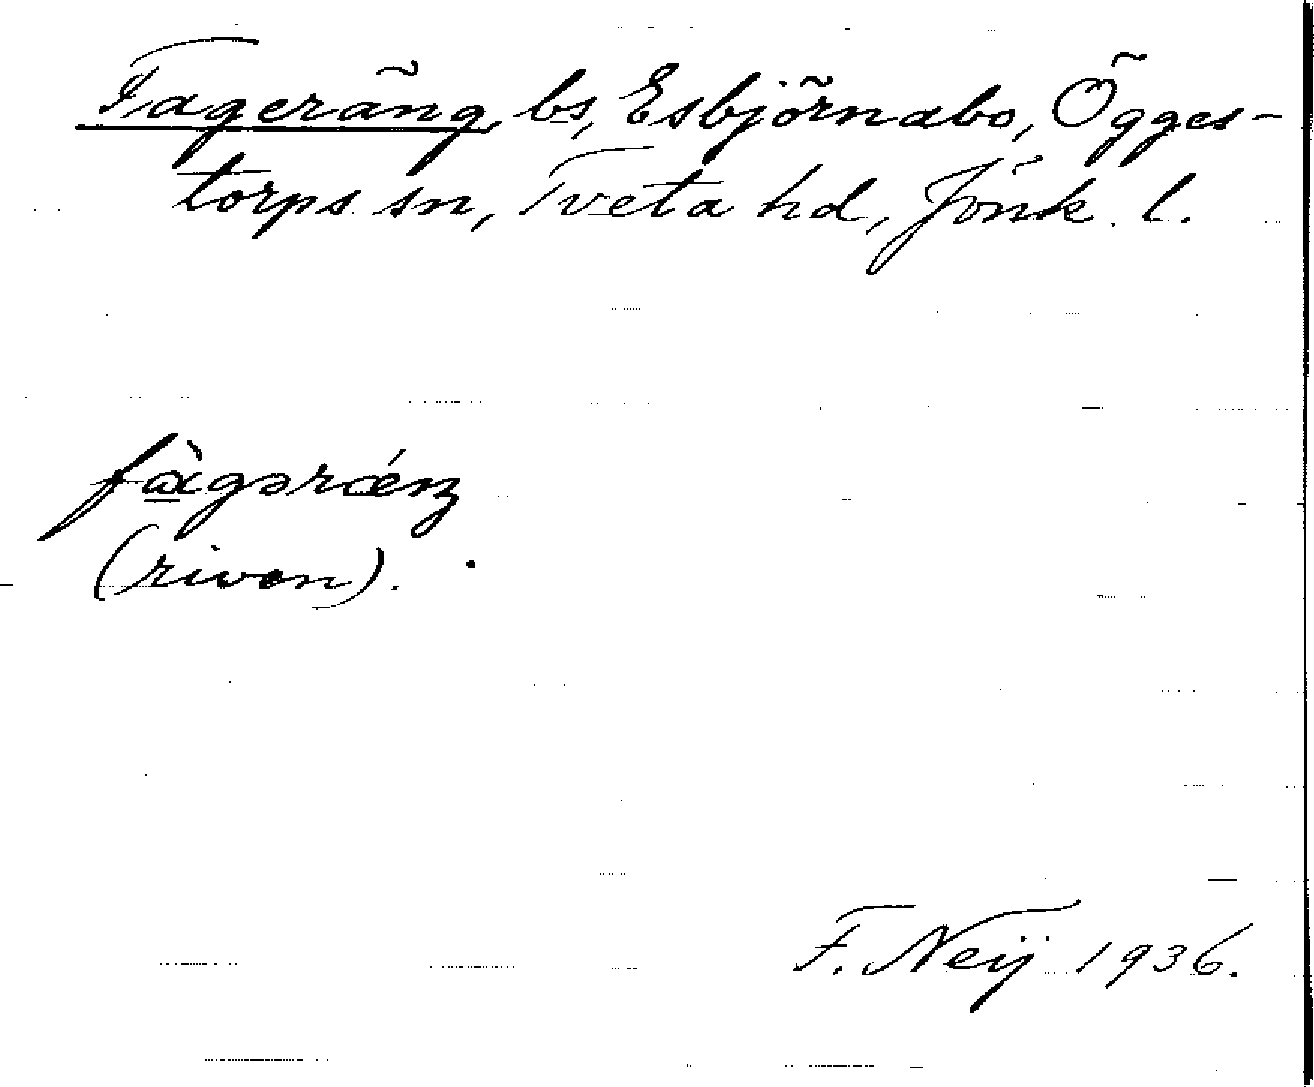 Fageräng, bs, Esbjörnabo, Ögges-
torps sn, Tveta hd, Jönk. l.
fàgərǽŋ
(riven).
F. Neij 1936.